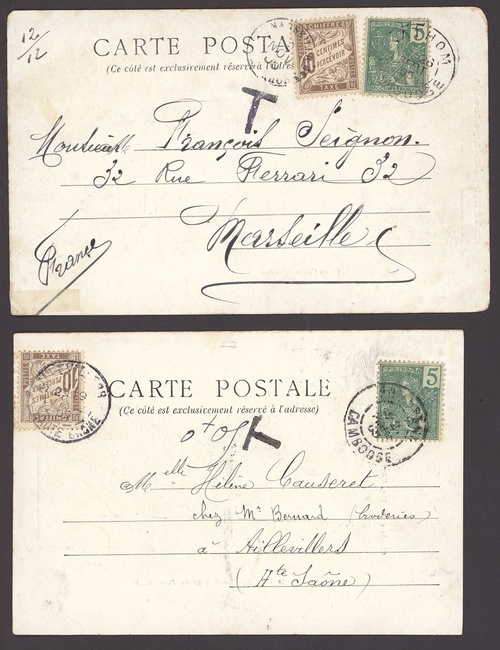 12/12
CARTE POSTA
(Ce côté est exclusivement réservé à l'adres
CHIFFRE
CENTIMES
À PERCEVOIR
TAXE
5
T
François Seignon.
32 Rue Ferrari 32
Marseille
France
10
CENTIMES
À PERCEVOIR
TAXE
CARTE POSTALE
(Ce côté est exclusivement réservé à l'adresse)
5
CAMBODGE
T
Melle Hélène Causeret
chez Mr Bernard (broderies)
à Aillevillers
(Hte Saône)